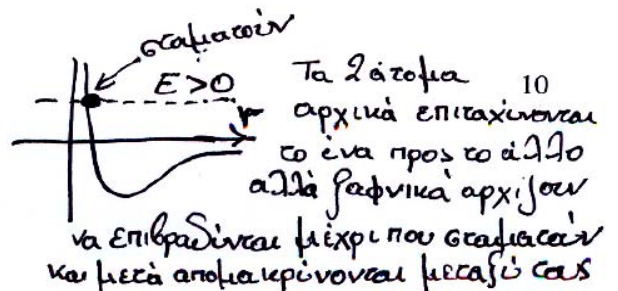 σταματούν
E>0
Τα 2 άτομα 10
r αρχικά επιταχύνονται
το ένα προς το άλλο
αλλά ξαφνικά αρχίζουν
να επιβραδύνται μέχρι που σταματούν
και μετά απομακρύνονται μεταξύ τους